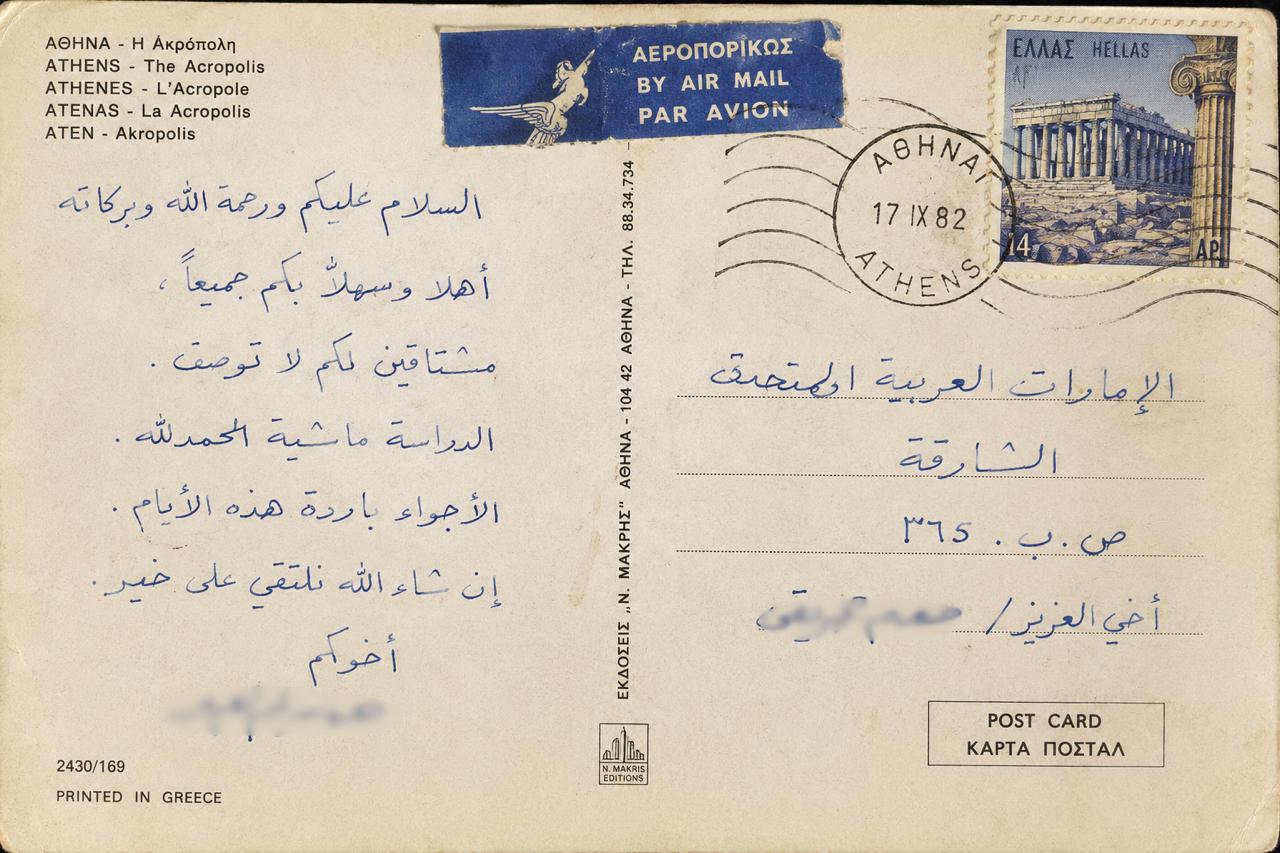 ΑΘΗΝΑ - Η Ἀκρόπολη
ATHENS - The Acropolis
ATHENES - L'Acropole
ATENAS - La Acropolis
ATEN - Akropolis
ΑΕΡΟΠΟΡΙΚΩΣ
BY AIR MAIL
PAR AVION
ΕΛΛΑΣ HELLAS
14
ΔΡ
ΑΘΗΝΑΙ
17 IX 82
ATHENS
السلام عليكم ورحمة الله وبركاته
أهلا وسهلاً بكم جميعاً،
مشتاقين لكم لا توصف.
الدراسة ماشية الحمدلله.
الأجواء باردة هذه الأيام.
إن شاء الله نلتقي على خير.
أخوكم
2430/169
PRINTED IN GREECE
ΕΚΔΟΣΕΙΣ „Ν. ΜΑΚΡΗΣ" ΑΘΗΝΑ - 104 42 ΑΘΗΝΑ - ΤΗΛ. 88.34.734
N. MAKRIS
EDITIONS
الإمارات العربية المتحدة
الشارقة
ص.ب. ٣٦٥
أخي العزيز/
POST CARD
ΚΑΡΤΑ ΠΟΣΤΑΛ